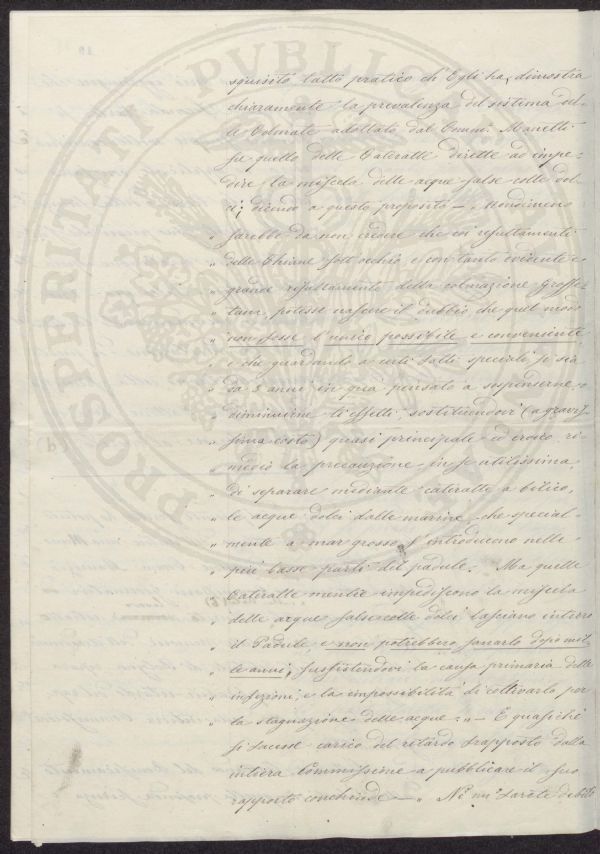 squisito tatto pratico ch'Egli ha, dimostra
chiaramente la prevalenza del sistema del-
le Colmate adottato dal Comm. Manetti
su quello delle Cateratte dirette ad impe-
dire la miscela delle acque salse colle dol-
ci; dicendo a questo proposito —
" sarebbe da non credere che coi resultamenti
" delle Chiane sott'occhio, e con tanto evidente e
" grande resultamento della colmazione Grosse-
" tana, potesse nascere il dubbio che quel modo
" non fosse l'unico possibile e conveniente
" e che guardando a certi fatti speciali, si sia
" da 8 anni in quà pensato a sospenderne o
" diminuirne li effetti, sostituendovi (a gravis-
" sima costo) quasi principale ed eroico ri-
" medio la precauzione in se utilissima,
" di separare mediante cateratte a bilico,
" le acque dolci dalle marine, che special-
" mente a mar grosso s'introducono nelle
" più basse parti del padule. Ma quelle
" Cateratte mentre impediscono la miscela
" delle acque salse colle dolci lasciano intiero
" il Padule, e non potrebbero sanarlo dopo mil-
" le anni, sussistendovi la causa primaria delle
" infezioni, e la impossibilità di coltivarlo per
" la stagnazione delle acque: " — E quasiché
si facesse carico del ritardo frapposto dalla
intiera Commissione a pubblicare il suo
rapporto conchiude — " Nè mi sarete debiti
PROSPERITATI PVBLICAE